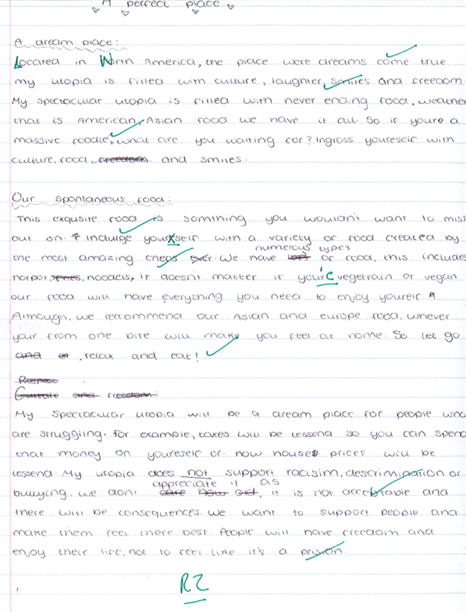 A perfect place
A dream place:
Located in North America, the place were dreams come true
my utopia is filled with culture, laughter, smiles and freedom.
My spectacular utopia is filled with never ending food, weather
that is American, Asian food we have it all. So if youre a
massive foodie, what are you waiting for? Ingross youreself with
culture, food, freedom and smiles.
Our spontaneous food:
This exqusite food is somthing you wouldn't want to miss
out on. Indulge yourself with a variety of food created by
numerous types
the most amazing chefs. We have of food, this includes
hotpot, noodels, it doesnt matter if your'e vegetrain or vegan
our food will have everything you need to enjoy yourelf.
Although, we recommend our Asian and europe food, whever
your from one bite will make you feel at home. So let go
and, relax and eat!
Culture and freedom:
My spectacular utopia will be a dream place for people who
are struggling. for example, taxes will be lessend so you can spend
that money on youreself or how houses prices will be
lessend. My utopia does not support racisim, descrimination or
appreciate it as
bullying. we dont, it is not acceptable and
there will be consequences we want to support people and
make them feel there best. People will have freedom and
enjoy their life, not to feel like it's a prison
R2